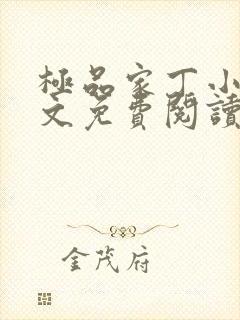 極品家丁小
文免費閱讀
金茂府